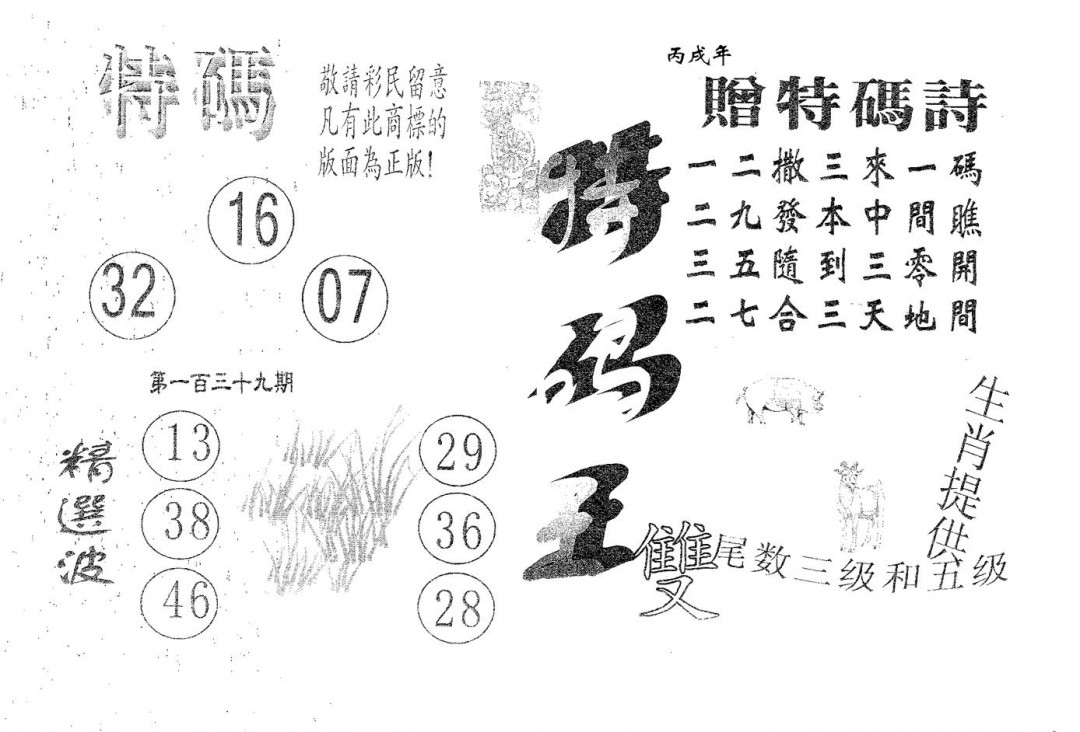 特碼
敬請彩民留意
凡有此商標的
版面為正版!
16
32
07
第一百三十九期
精選波
13
38
46
29
36
28
特码王
丙戌年
贈特碼詩
一二撒三來一碼
二九發本中間瞧
三五隨到三零開
二七合三天地間
生肖提供
雙尾数三级和五级